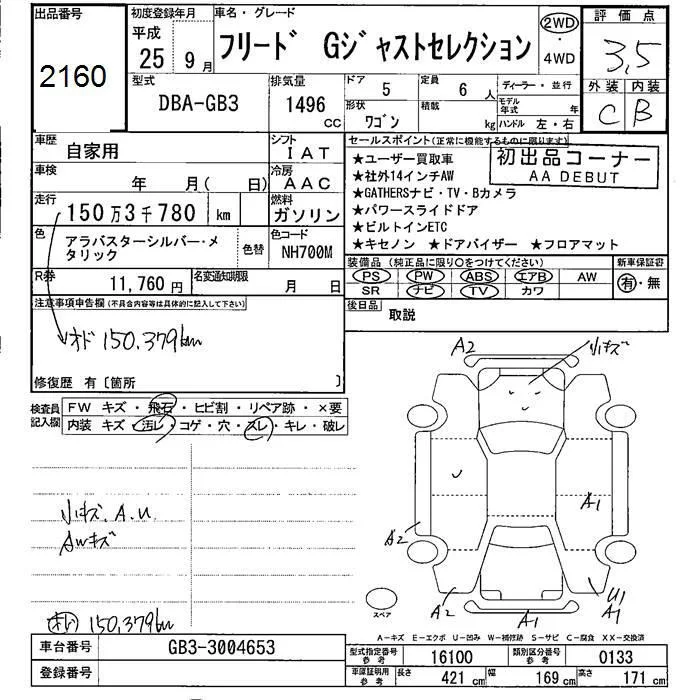 出品番号 初度登録年月 車名・グレード 評価点
2160 平成 25 9月 フリード Gジャストセレクション 2WD 4WD 3,5
型式 排気量 ドア 5 定員 6 人 ディーラー・並行 外装 内装
DBA-GB3 1496 cc 形状 ワゴン 積載 kg モデル年式 年 ハンドル 左・右 C B
車歴 自家用 シフト IAT セールスポイント(正常に機能するものに限ります)
車検 年 月( 日) 冷房 AAC ★ユーザー買取車 初出品コーナー
★社外14インチAW AA DEBUT
走行 150万3千780 km 燃料 ガソリン ★GATHERSナビ・TV・Bカメラ
★パワースライドドア
色 アラバスターシルバー・メタリック 色替 色コード NH700M ★ビルトインETC
★キセノン ★ドアバイザー ★フロアマット
R券 11,760円 名変通知期限 月 日 装備品(純正品に限り○をつけてください) 新車保証書
PS PW ABS エアB AW 有・無
SR ナビ TV カワ
注意事項申告欄(不具合内容等は具体的に記入して下さい) 後日品 取説
オド 150,379km
修復歴 有〔箇所 〕
検査員記入欄 FW キズ・飛石・ヒビ割・リペア跡・×要
内装 キズ・汚レ・コゲ・穴・スレ・キレ・破レ
A2 小キズ
A1
小キズ、A.U. A2
AWキズ
A2 A1 U1 A1
スペア
150,379km
A-キズ E-エクボ U-凹み W-補修跡 S-サビ C-腐食 XX-交換済
車台番号 GB3-3004653 型式指定番号 参考 16100 類別区分番号 参考 0133
登録番号 車庫証明用 参考 長さ 421 cm 幅 169 cm 高さ 171 cm